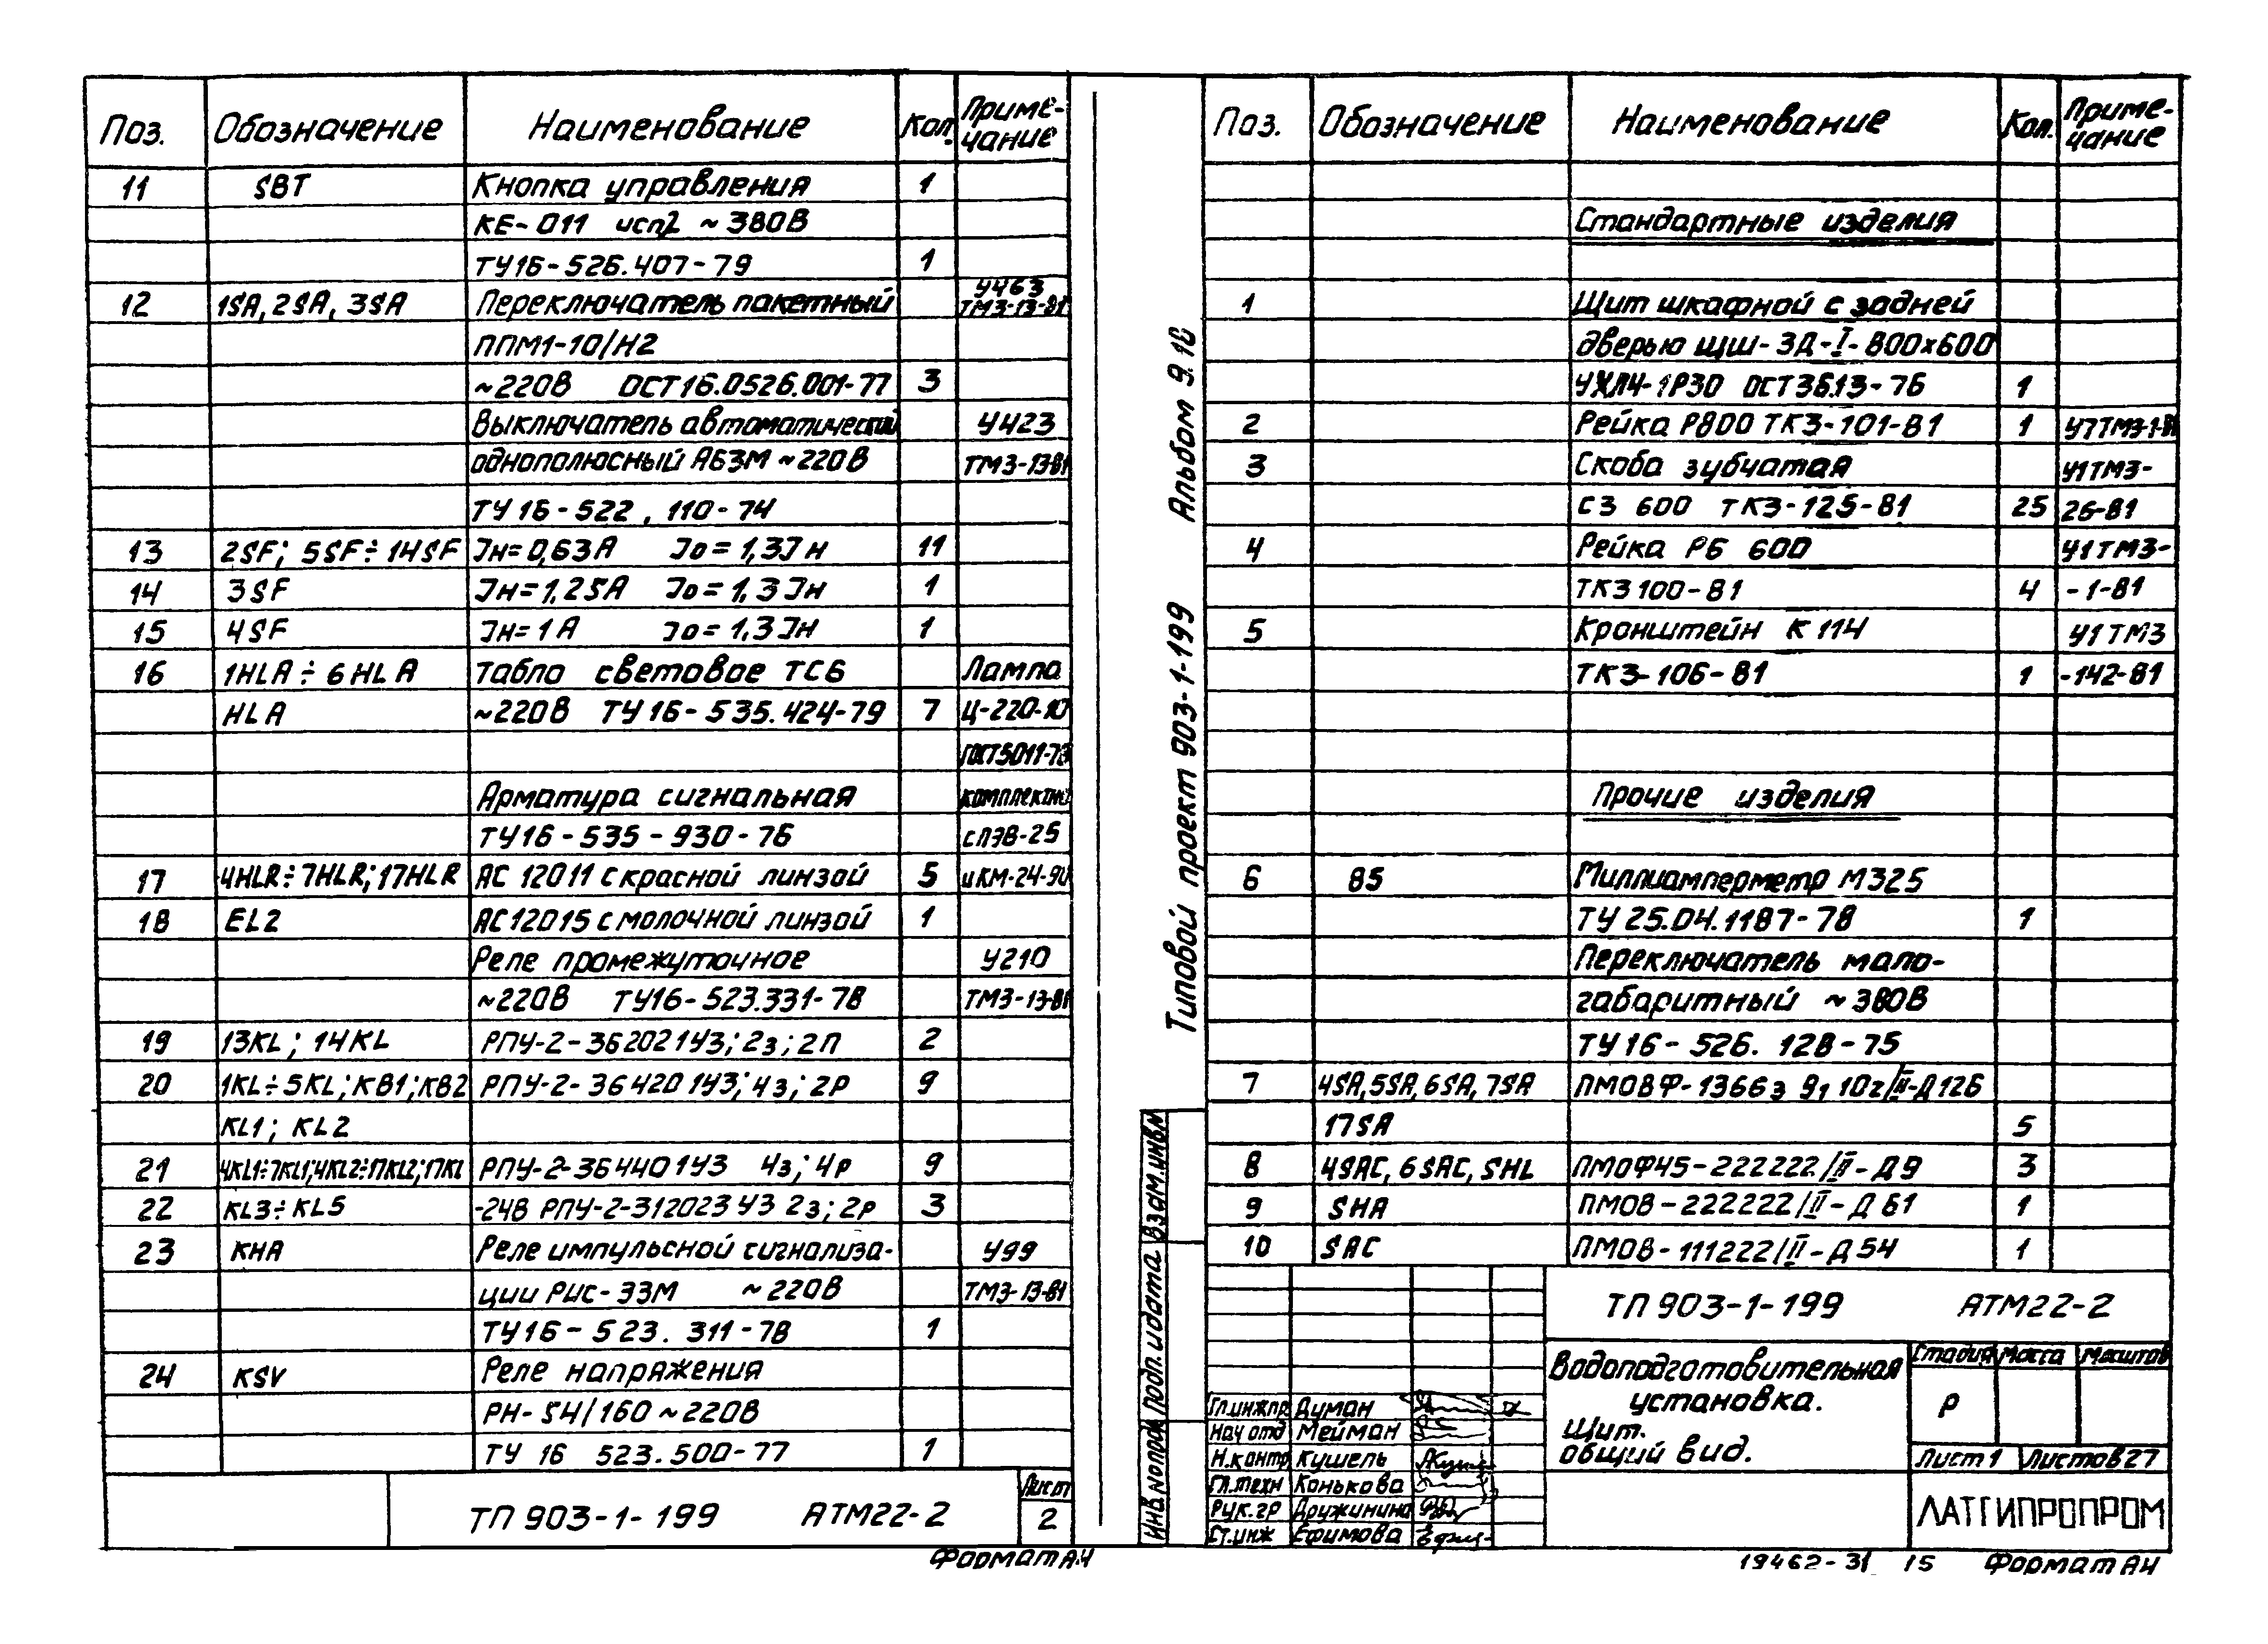 Поз. Обозначение Наименование Кол. Приме-
чание
11 SBT Кнопка управления 1
КЕ-011 исп2 ~380В
ТУ16-526.407-79 1
12 1SA, 2SA, 3SA Переключатель пакетный У463
ТМ3-13-81
ППМ1-10/Н2
~220В ОСТ16.0526.001-77 3
Выключатель автоматический У423
однополюсный А63М ~220В ТМ3-13-81
ТУ16-522, 110-74
13 2SF; 5SF÷14SF Iн=0,63А Iо=1,3Iн 11
14 3SF Iн=1,25А Iо=1,3Iн 1
15 4SF Iн=1А Iо=1,3Iн 1
16 1HLA÷6HLA Табло световое ТСБ Лампа
HLA ~220В ТУ16-535.424-79 7 Ц-220-10
ГОСТ5011-73
Арматура сигнальная комплектно
ТУ16-535-930-76 с ПЭВ-25
17 4HLR÷7HLR; 17HLR АС 12011 с красной линзой 5 и КМ-24-90
18 EL2 АС12015 с молочной линзой 1
Реле промежуточное У210
~220В ТУ16-523.331-78 ТМ3-13-81
19 13KL; 14KL РПУ-2-36202 1У3; 2з; 2П 2
20 1KL÷5KL; KB1; KB2 РПУ-2-36420 1У3; 4з; 2Р 9
KL1; KL2
21 4KL1÷7KL1; 4KL2÷17KL2; 17KL РПУ-2-36440 1У3 4з; 4Р 9
22 KL3÷KL5 -24В РПУ-2-312023 У3 2з; 2Р 3
23 KHA Реле импульсной сигнализа- У99
ции РИС-Э3М ~220В ТМ3-13-81
ТУ16-523. 311-78 1
24 KSV Реле напряжения
РН-54/160 ~220В
ТУ 16 523.500-77 1
ТП 903-1-199 АТМ22-2 Лист
2
Формат А4
Альбом 9.10
Типовой проект 903-1-199
Поз. Обозначение Наименование Кол. Приме-
чание
Стандартные изделия
1 Щит шкафной с задней
дверью ЩШ-ЗД-I-800х600
УХЛ4-1Р30 ОСТ36.13-76 1
2 Рейка Р800 ТК3-101-81 1 У7ТМ3-1-81
3 Скоба зубчатая У1ТМ3-
С3 600 ТК3-125-81 25 26-81
4 Рейка РБ 600 У1ТМ3-
ТК3100-81 4 -1-81
5 Кронштейн К 114 У1ТМ3
ТК3-106-81 1 -142-81
Прочие изделия
6 85 Миллиамперметр М325
ТУ 25.04.1187-78 1
Переключатель мало-
габаритный ~380В
ТУ16-526. 128-75
7 4SA, 5SA, 6SA, 7SA ПМОВФ-1366з 91 10г/II-Д126
17SA 5
8 4SAC, 6SAC, SHL ПМОФ45-222222/II-Д9 3
9 SHA ПМОВ-222222/II-Д61 1
10 SAC ПМОВ-111222/II-Д54 1
Взам.инв№
Подп. и дата
Инв.№подл.
ТП 903-1-199 АТМ22-2
Водоподготовительная
установка.
Щит.
общий вид.
Стадия Масса Масштаб
Р
Лист 1 Листов 27
ЛАТГИПРОПРОМ
Гл.инж.пр Думан
Нач отд Мейман
Н.контр Кушель
Гл.техн Конькова
Рук.гр Дружинина
Ст.инж Ефимова
19462-31 15 Формат А4